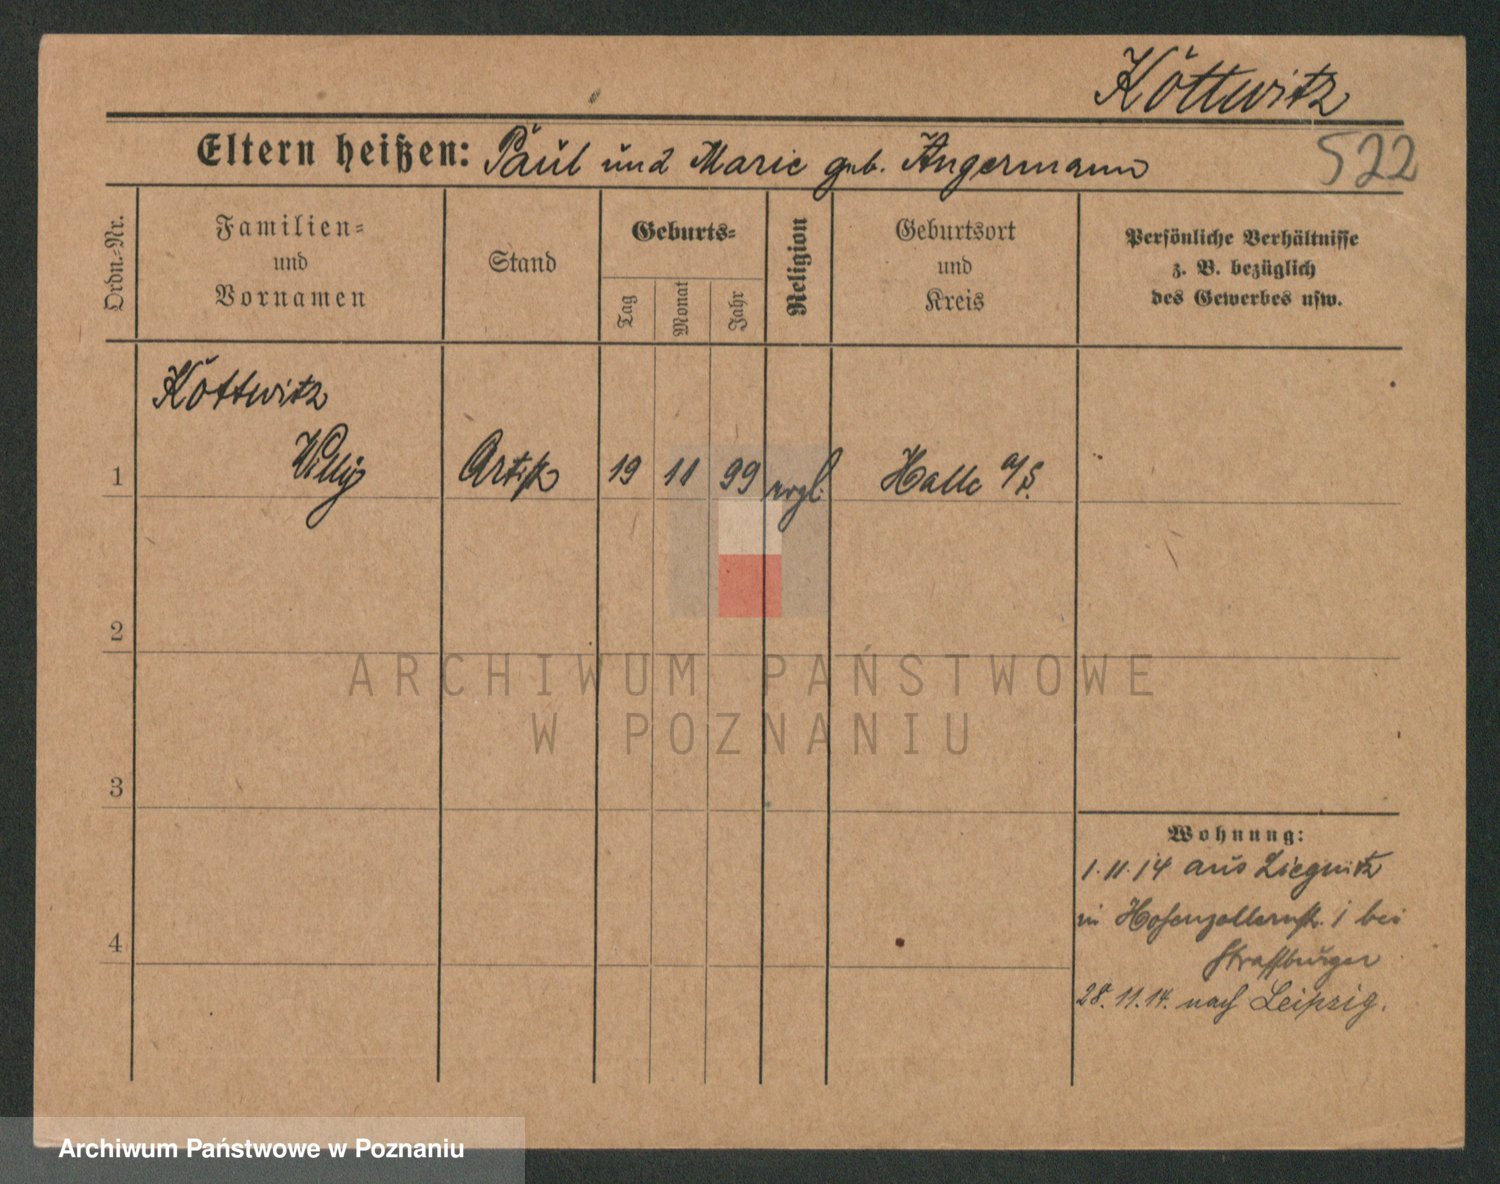 Köttwitz
Eltern heißen: Paul und Marie geb. Angermann
522
Ordn.-Nr.
Familien-
und
Vornamen
Stand
Geburts-
Tag
Monat
Jahr
Religion
Geburtsort
und
Kreis
Persönliche Verhältnisse
z. B. bezüglich
des Gewerbes usw.
Köttwitz
1 Willy Artist 19 11 99 evgl. Halle a/S.
2
3
4
Wohnung:
1.11.14 aus Liegnitz
in Hohenzollernstr. 1 bei
Straßburger
28.11.14. nach Leipzig.
ARCHIWUM PAŃSTWOWE
W POZNANIU
Archiwum Państwowe w Poznaniu